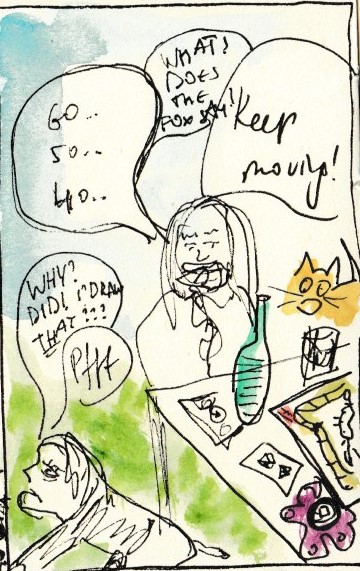 60..
50..
40..
WHAT?
DOES
THE
FOX SAY?
Keep
moving!
WHY?
DID I DRAW
THAT???
PHA